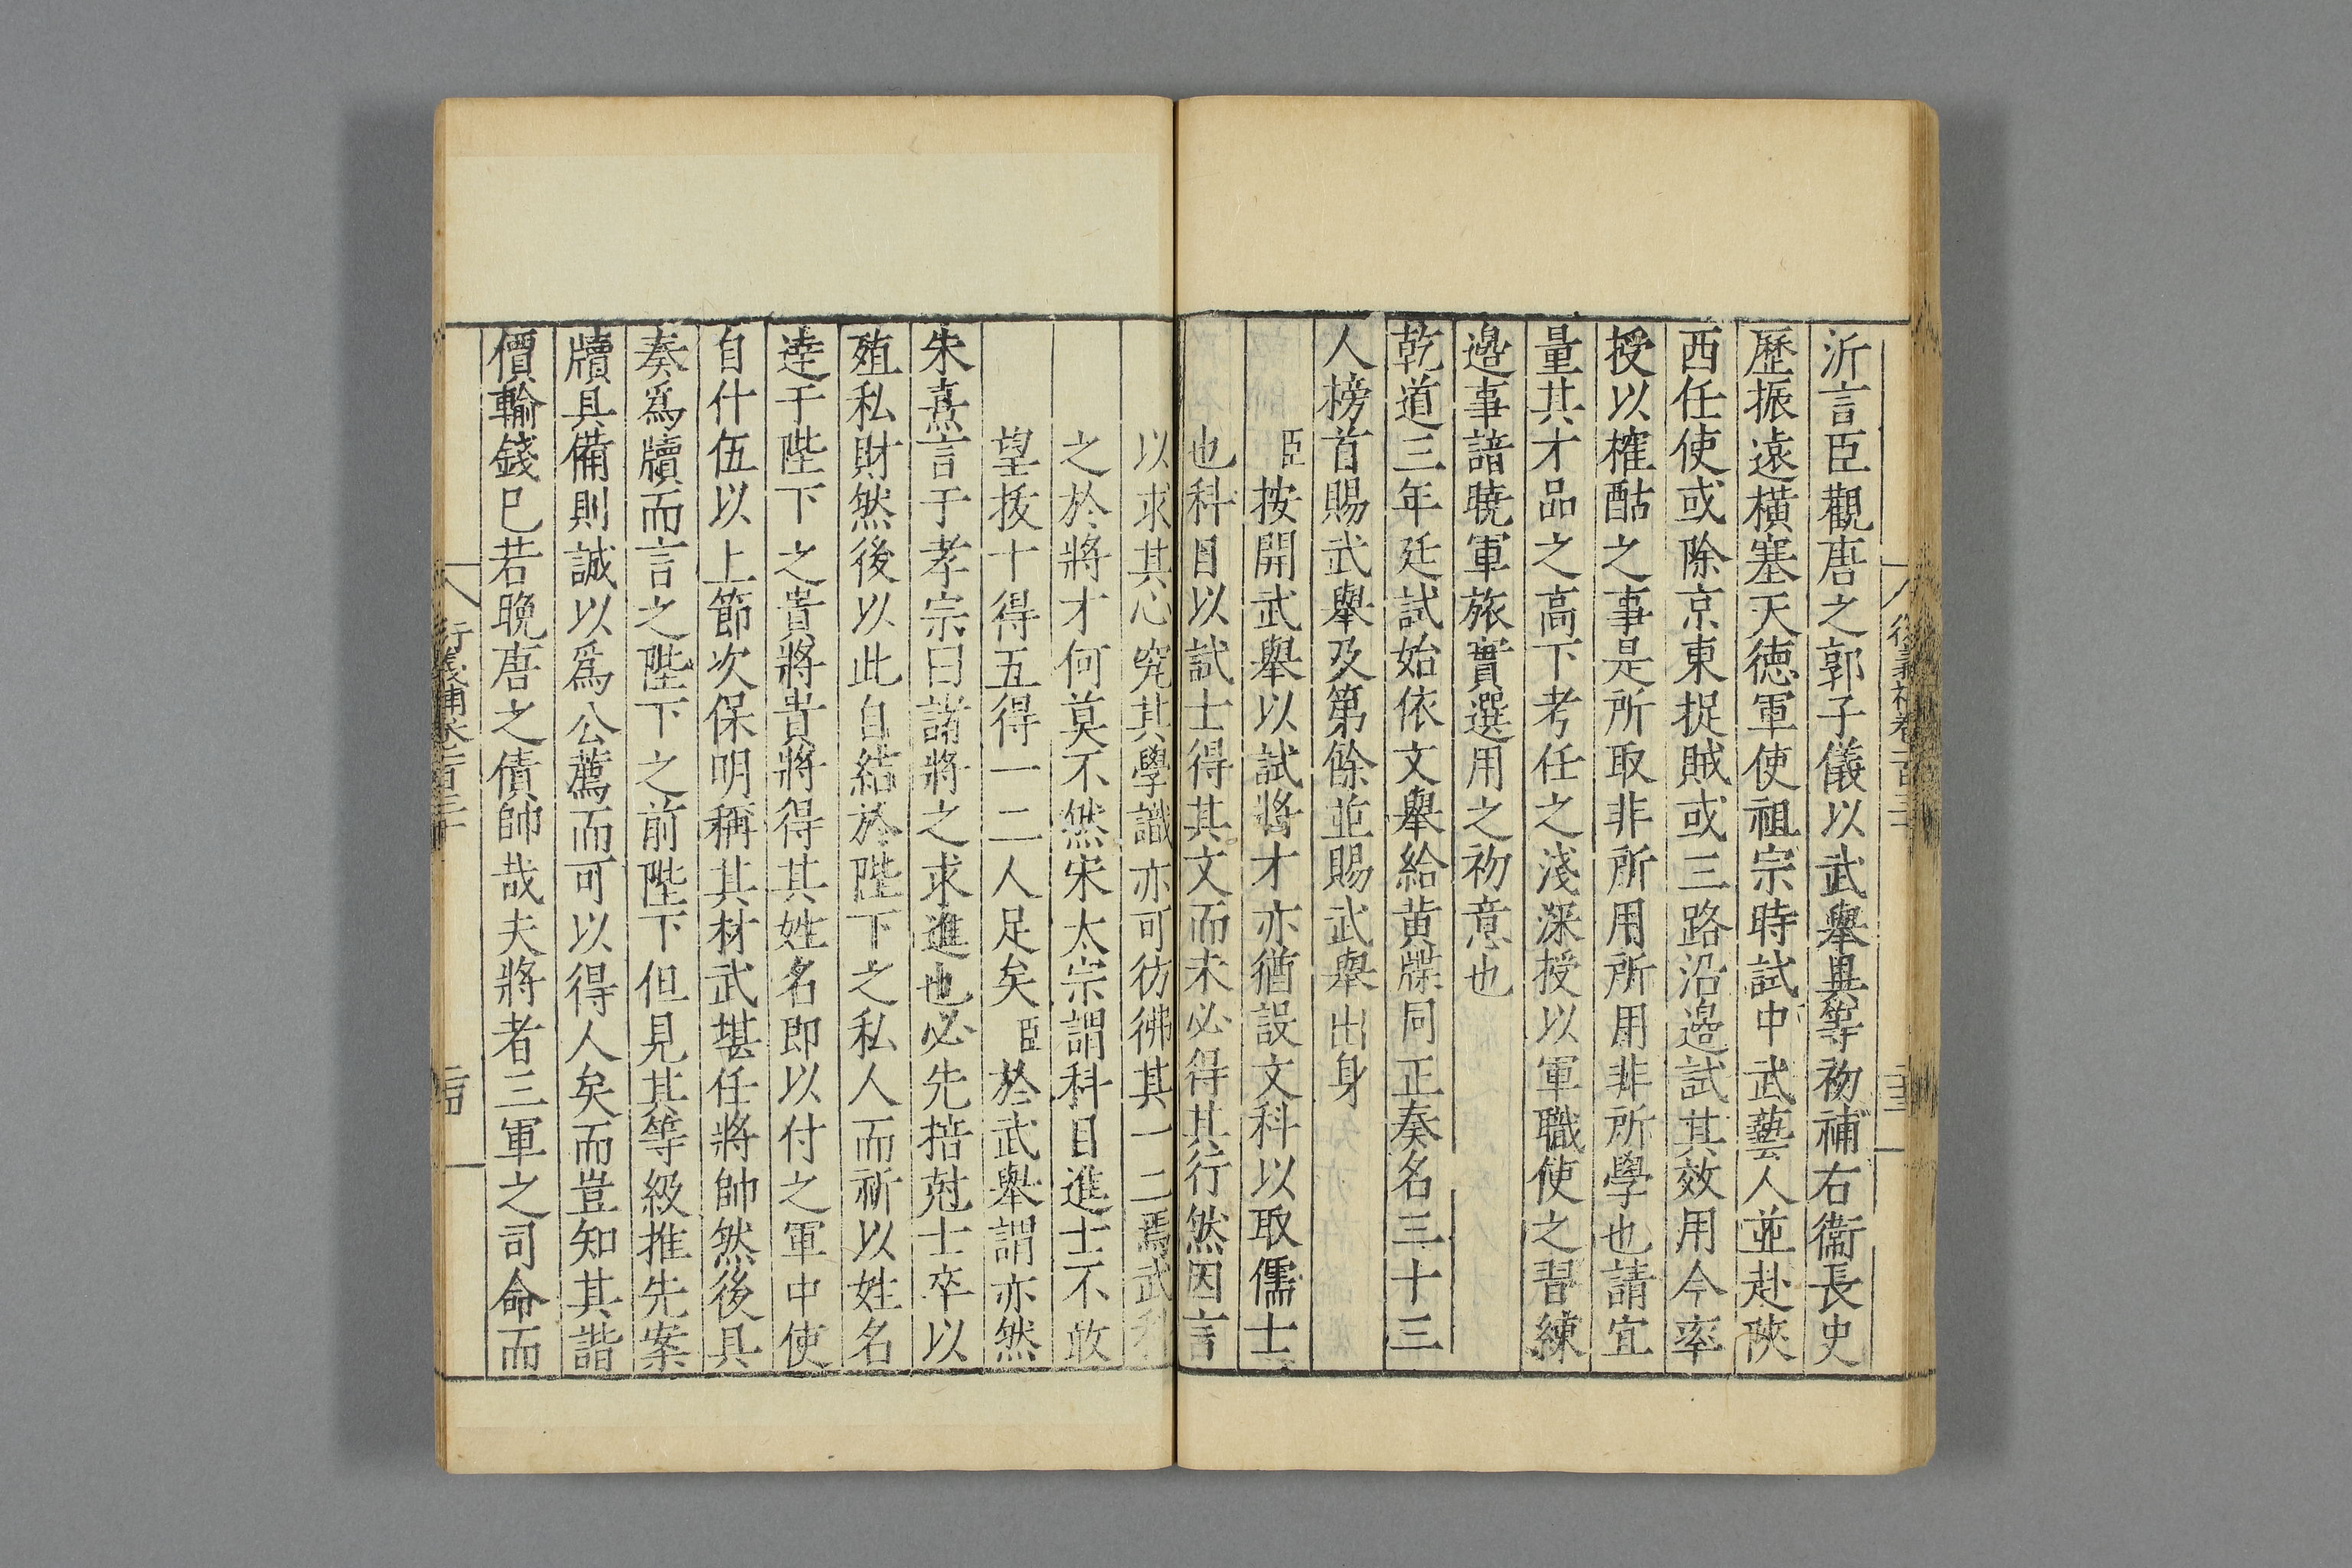 沂言臣觀唐之郭子儀以武舉異等初補右衞長史
歷振遠橫塞天德軍使祖宗時試中武藝人並赴陝
西任使或除京東捉賊或三路沿邉試其效用今率
授以榷酤之事是所取非所用所用非所學也請宜
量其才品之高下考任之淺深授以軍職使之習練
邉事諳曉軍旅實選用之初意也
乾道三年廷試始依文舉給黄牒同正奏名三十三
人榜首賜武舉及第餘並賜武舉出身
臣按開武舉以試將才亦猶設文科以取儒士
也科目以試士得其文而未必得其行然因言
以求其心究其學識亦可彷彿其一二焉武科
之於將才何莫不然宋太宗謂科目進士不敢
望拔十得五得一二人足矣臣於武舉謂亦然
朱熹言于孝宗曰諸將之求進也必先掊尅士卒以
殖私財然後以此自結於陛下之私人而祈以姓名
逹于陛下之貴將貴將得其姓名即以付之軍中使
自什伍以上節次保明稱其材武堪任將帥然後具
奏爲牘而言之陛下之前陛下但見其等級推先案
牘具備則誠以爲公薦而可以得人矣而豈知其諧
價輸錢巳若晩唐之債帥哉夫將者三軍之司命而